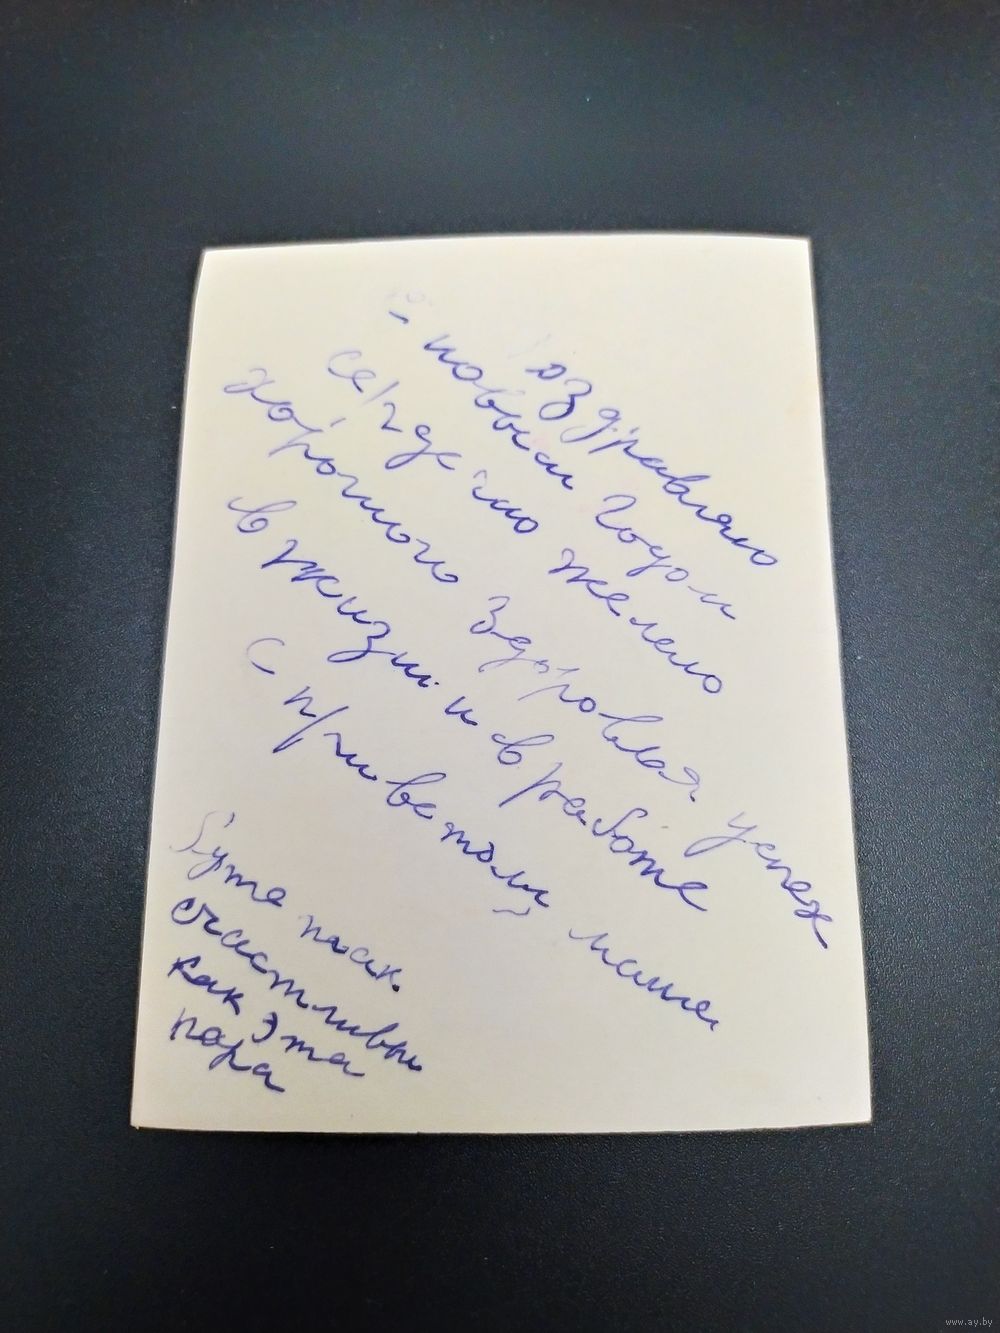 Поздравляю
с новым годом
сердечно желаю
хорошого здоровья успех
в жизни и в работе
с приветом мама
Буте так
счастливы
как эта
пара
www.ay.by